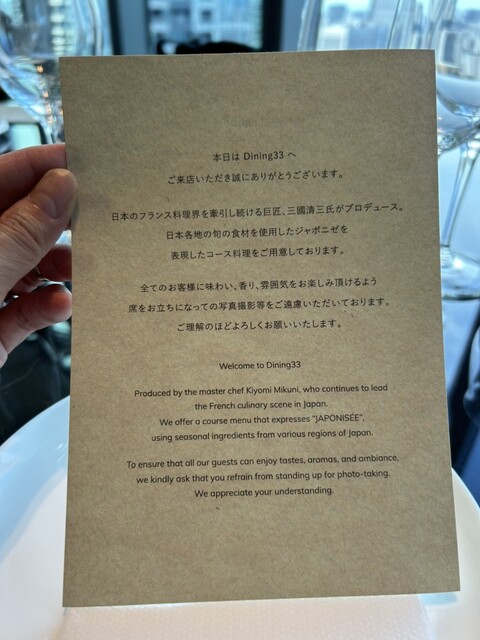 本日は Dining33 へ
ご来店いただき誠にありがとうございます。
日本のフランス料理界を牽引し続ける巨匠、三國清三氏がプロデュース。
日本各地の旬の食材を使用したジャポニゼを
表現したコース料理をご用意しております。
全てのお客様に味わい、香り、雰囲気をお楽しみ頂けるよう
席をお立ちになっての写真撮影等をご遠慮いただいております。
ご理解のほどよろしくお願いいたします。
Welcome to Dining33
Produced by the master chef Kiyomi Mikuni, who continues to lead
the French culinary scene in Japan.
We offer a course menu that expresses “JAPONISÉE”,
using seasonal ingredients from various regions of Japan.
To ensure that all our guests can enjoy tastes, aromas, and ambiance,
we kindly ask that you refrain from standing up for photo-taking.
We appreciate your understanding.